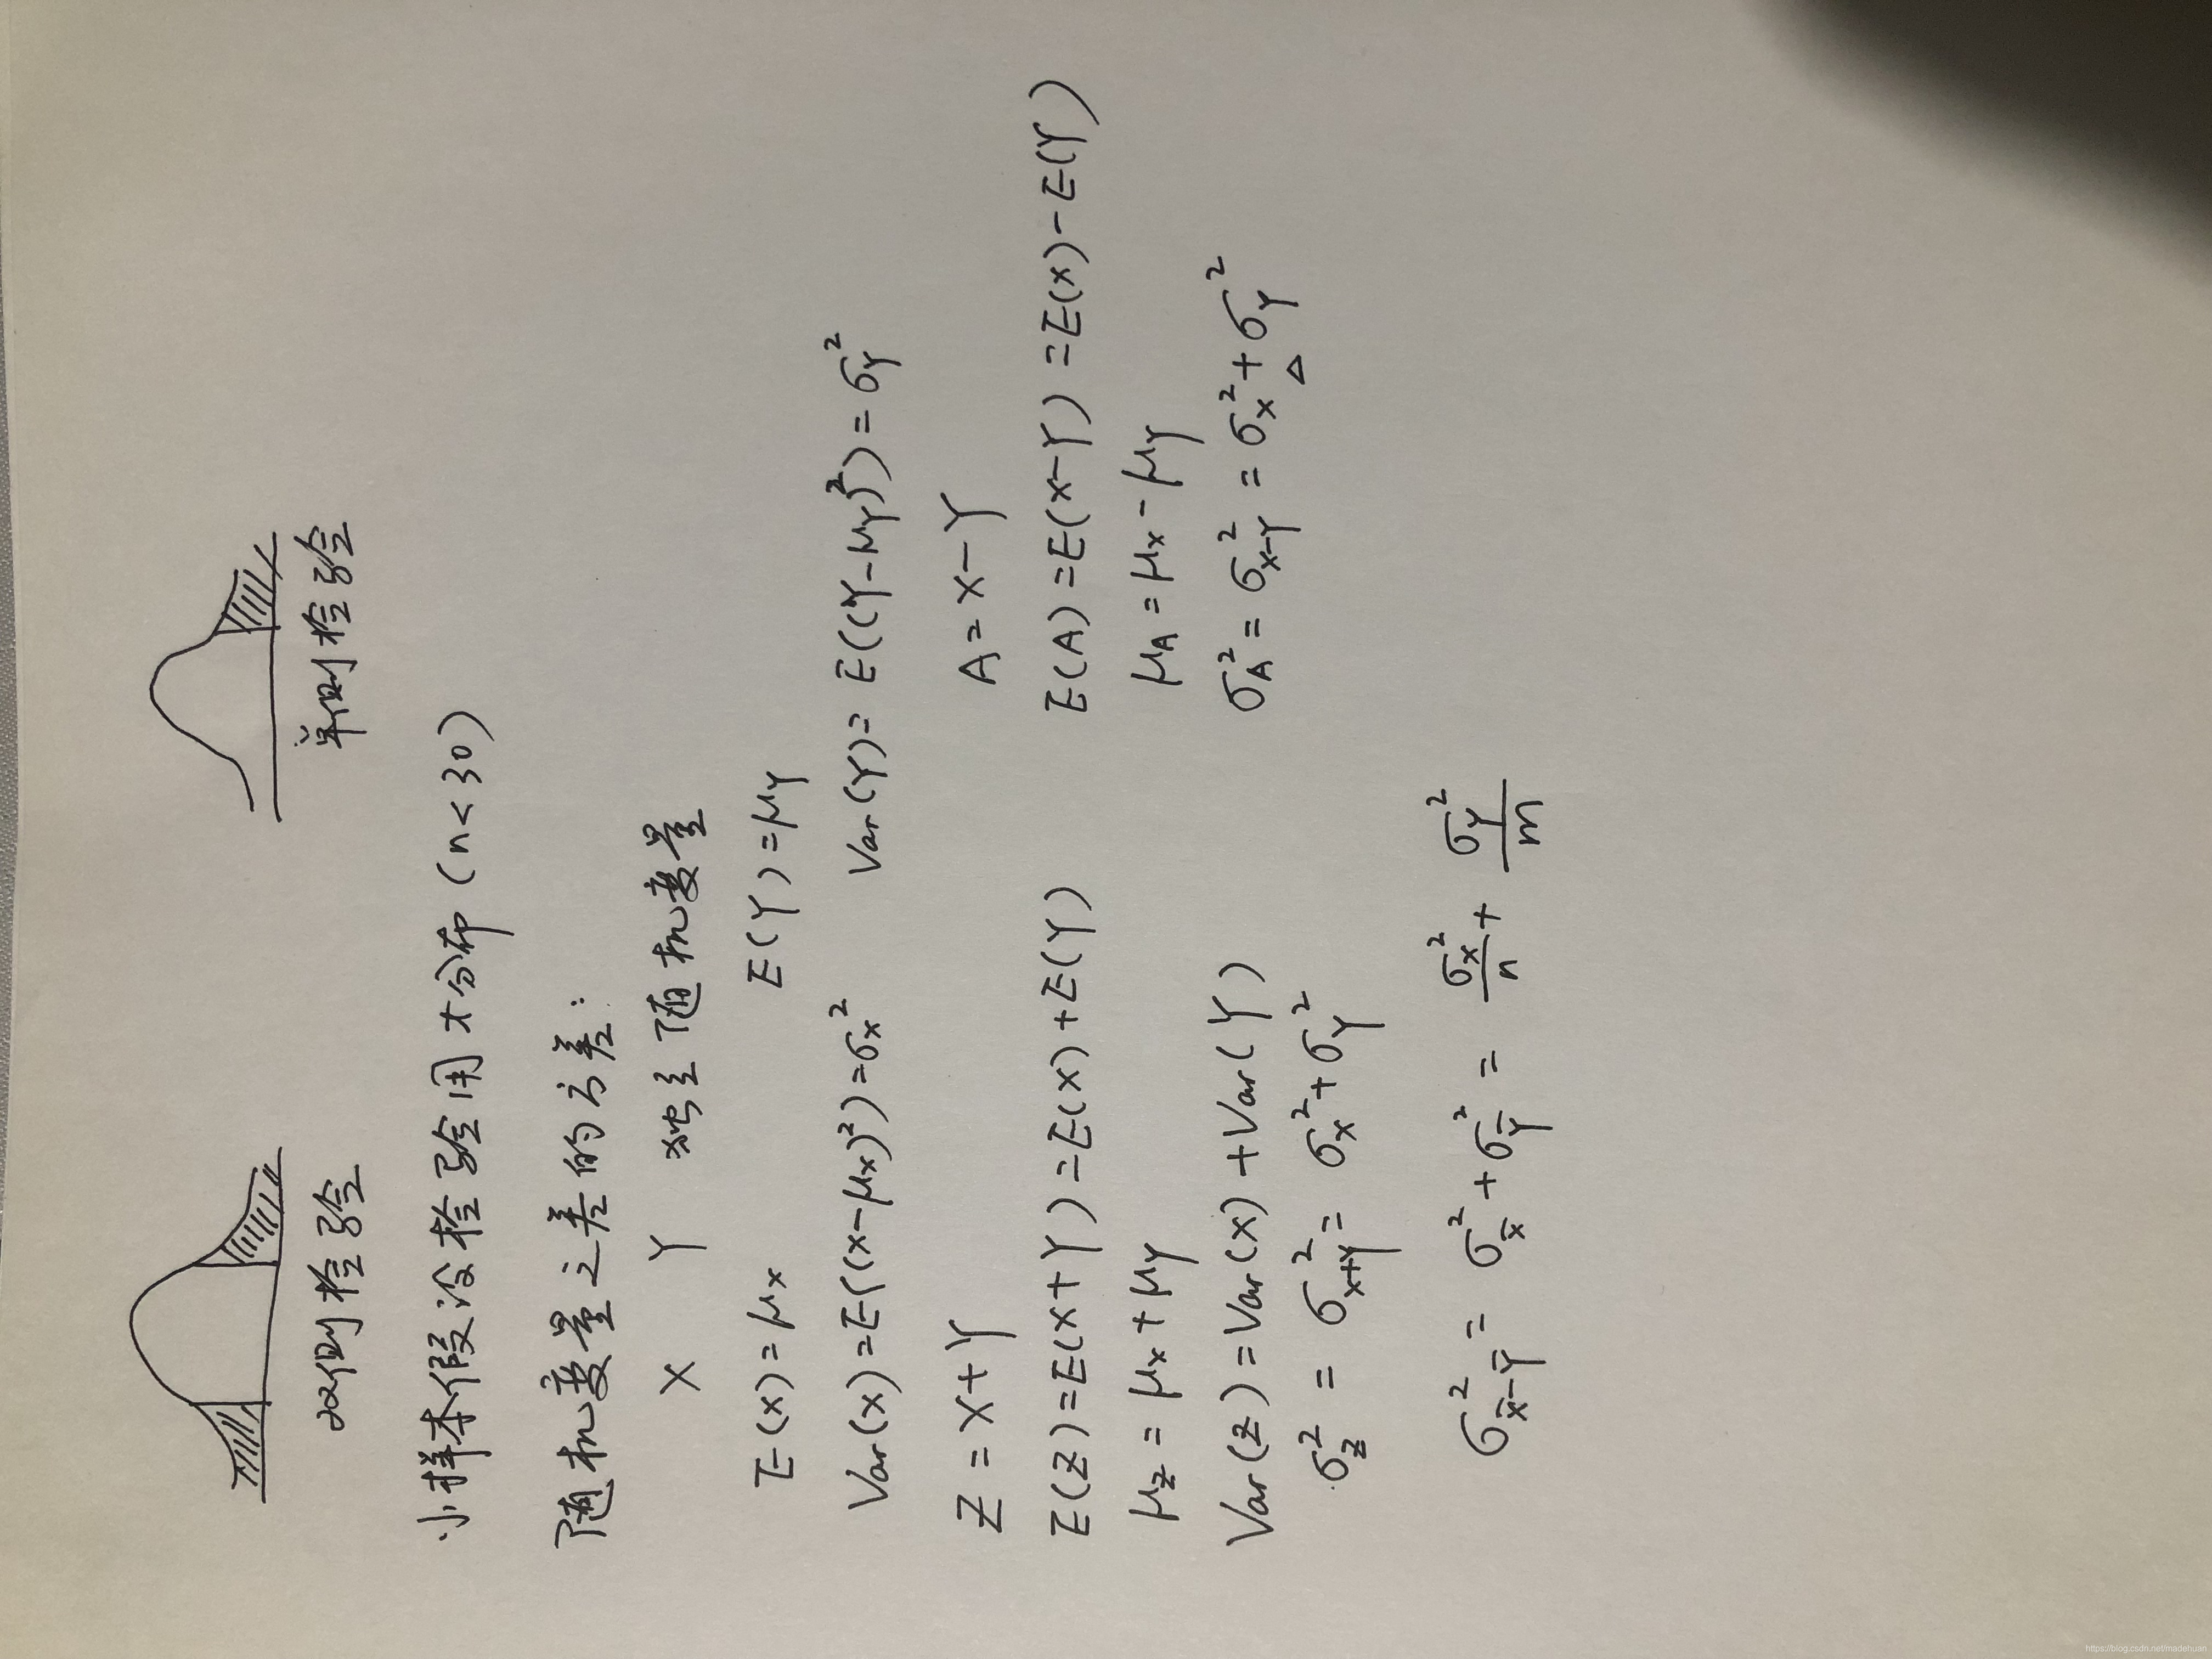 双侧检验 单侧检验
小样本假设检验用大分布 (n<30)
随机变量之差的方差:
X Y 独立随机变量
E(x)=μx E(Y)=μY
Var(x)=E((x-μx)²)=σx² Var(Y)=E((Y-μY)²)=σY²
Z=X+Y A=X-Y
E(Z)=E(x+Y)=E(x)+E(Y) E(A)=E(x-Y)=E(x)-E(Y)
μz=μx+μY μA=μx-μy
Var(Z)=Var(x)+Var(Y) σA²=σx-Y²=σx²+σY²
σz²=σx+Y²=σx²+σY² Δ
σx̄-Ȳ²=σx̄²+σȲ²=σx²/n+σY²/m
https://blog.csdn.net/madehuan